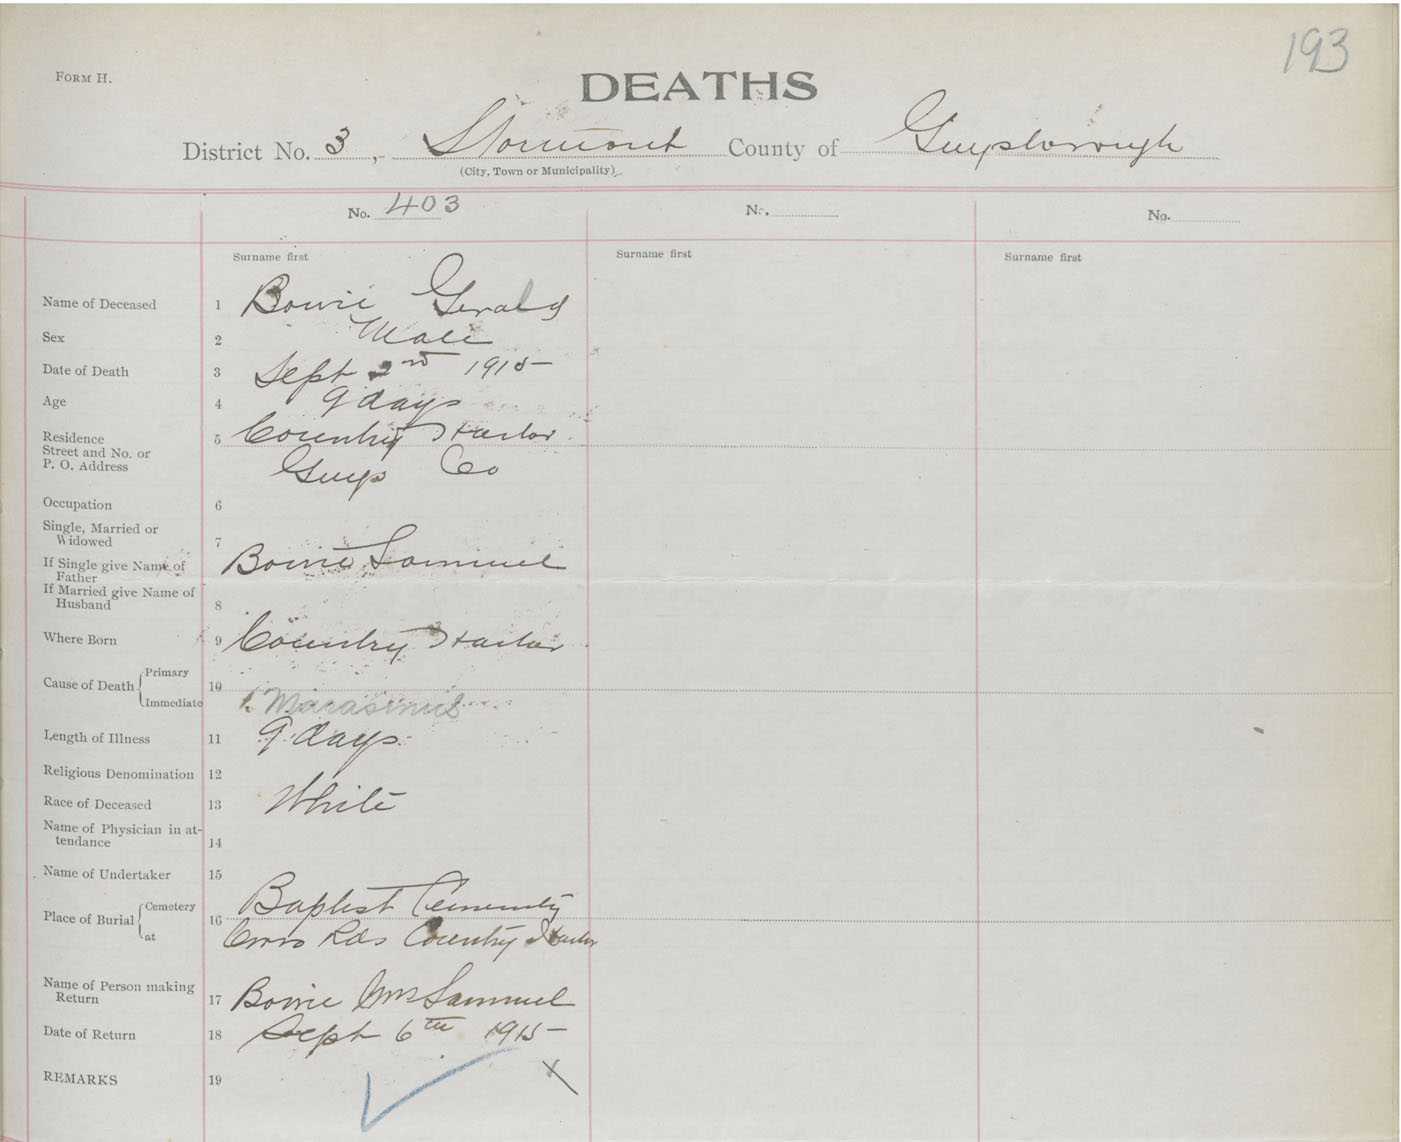 193
FORM H.
DEATHS
District No. 3, Stormont County of Guysborough
(City, Town or Municipality)
No. 403 No. No.
Surname first Surname first Surname first
Name of Deceased 1 Bowie Gerald
Sex 2 Male
Date of Death 3 Sept 2nd 1915
Age 4 9 days
Residence 5 Country Harbor
Street and No. or
P. O. Address Guys Co
Occupation 6
Single, Married or
Widowed 7
If Single give Name of Bowie Samuel
Father
If Married give Name of
Husband 8
Where Born 9 Country Harbor
Cause of Death Primary 10
Immediate Marasmus
Length of Illness 11 9 days
Religious Denomination 12
Race of Deceased 13 White
Name of Physician in at-
tendance 14
Name of Undertaker 15
Place of Burial Cemetery 16 Baptist Cemmenty
at Cross Rds Country Harbor
Name of Person making
Return 17 Bowie Mrs Samuel
Date of Return 18 Sept 6th 1915
REMARKS 19